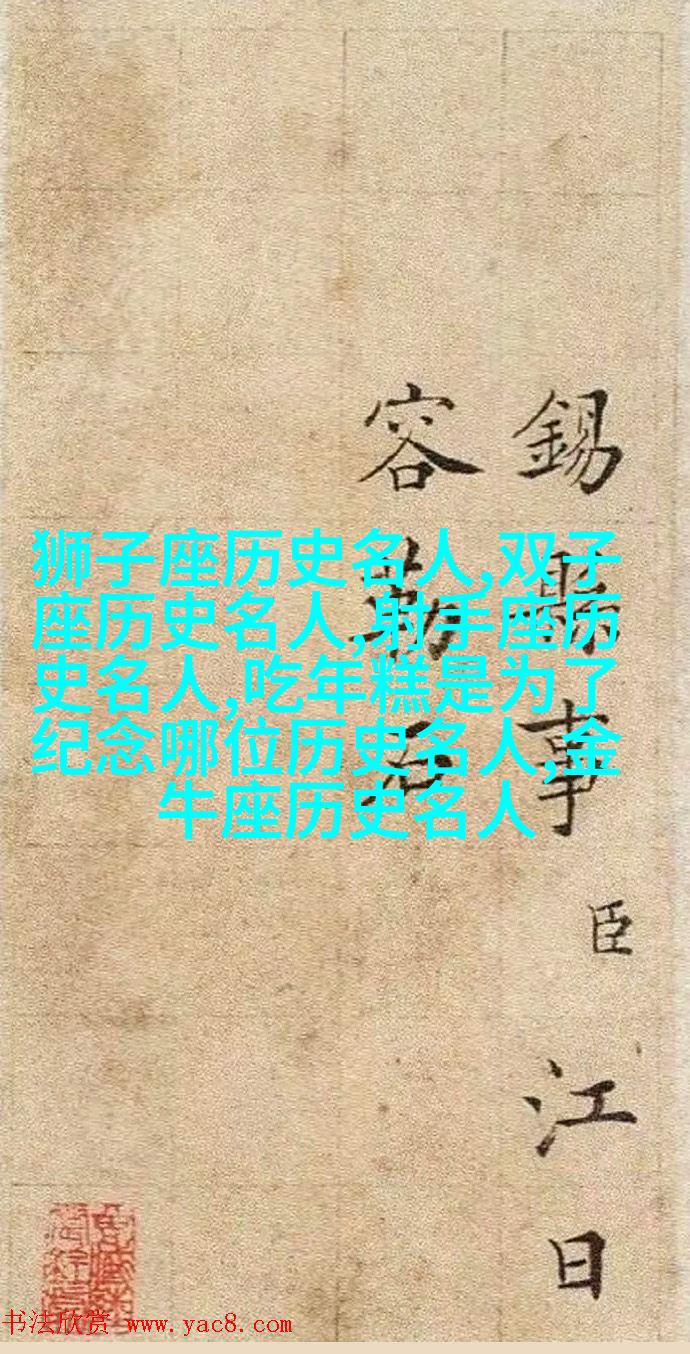 狮子座历史名人,双子
座历史名人,射手座历
史名人,吃年糕是为了
纪念哪位历史名人,金
牛座历史名人
錫 賜 事 臣 江 日
容 勒 石
书法欣赏 www.yac8.com